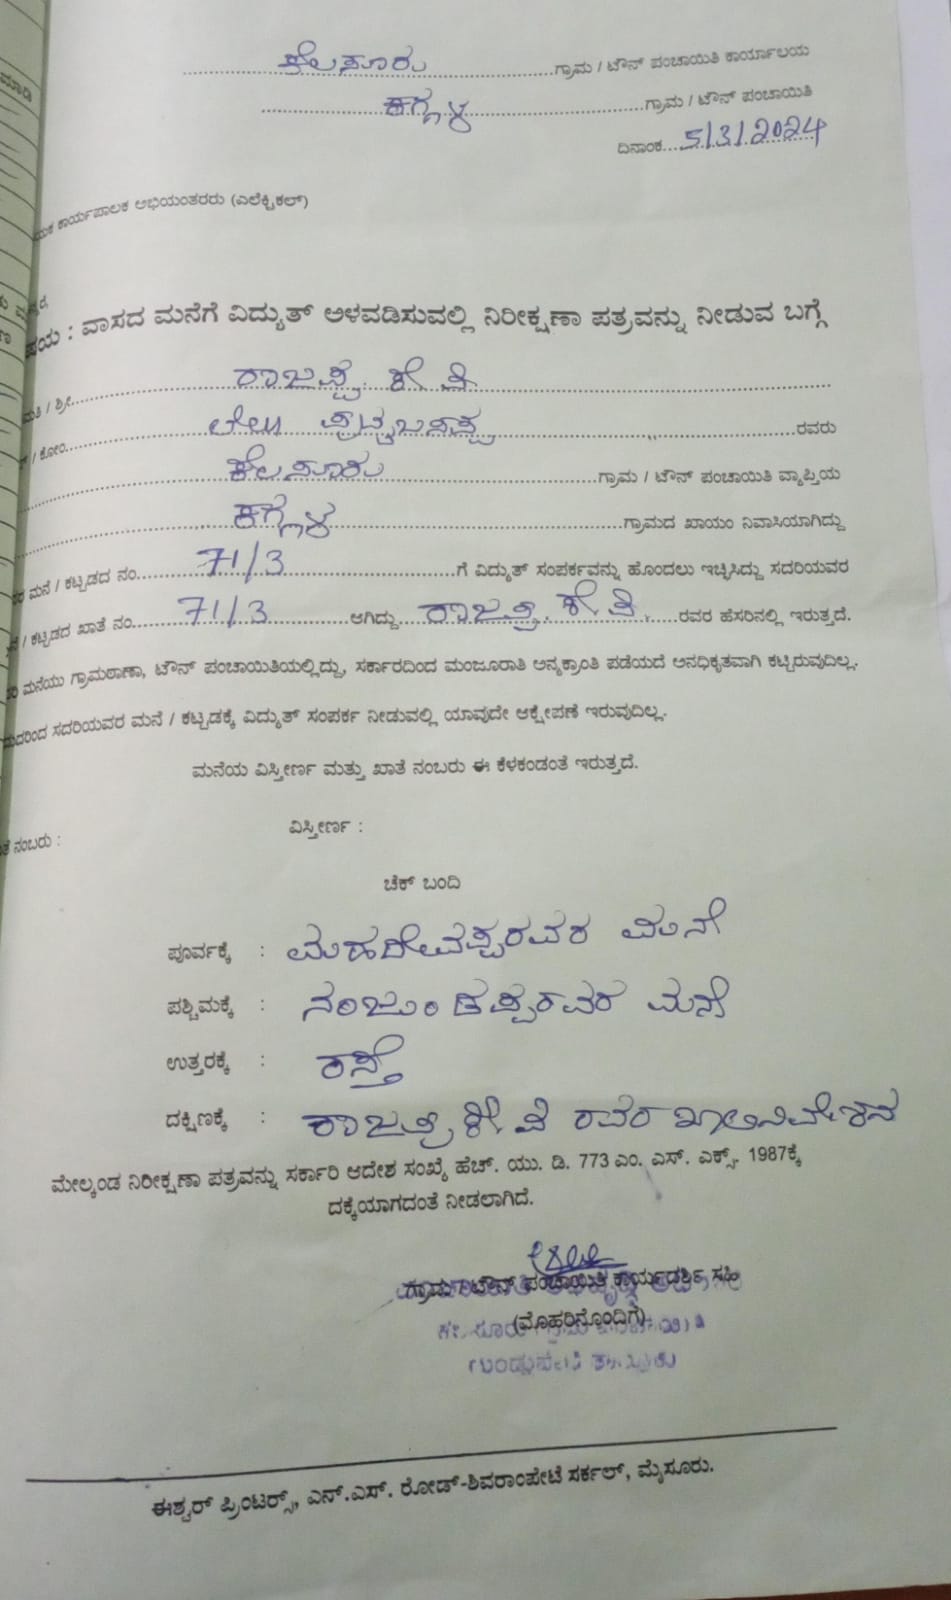 ಕೆಲಸೂರು ಗ್ರಾಮ / ಟೌನ್ ಪಂಚಾಯಿತಿ ಕಾರ್ಯಾಲಯ
ಕಗ್ಗಳ ಗ್ರಾಮ / ಟೌನ್ ಪಂಚಾಯಿತಿ
ದಿನಾಂಕ...5/3/2024
ಕಾರ್ಯಪಾಲಕ ಅಭಿಯಂತರರು (ಎಲೆಕ್ಟ್ರಿಕಲ್)
: ವಾಸದ ಮನೆಗೆ ವಿದ್ಯುತ್ ಅಳವಡಿಸುವಲ್ಲಿ ನಿರೀಕ್ಷಣಾ ಪತ್ರವನ್ನು ನೀಡುವ ಬಗ್ಗೆ
/ ಶ್ರೀ ರಾಜಪ್ಪ ಕೆ ಪಿ
/ ಕೋಂ ಲೇಟ್ ಪುಟ್ಟಬಸಪ್ಪ ರವರು
ಕೆಲಸೂರು ಗ್ರಾಮ / ಟೌನ್ ಪಂಚಾಯಿತಿ ವ್ಯಾಪ್ತಿಯ
ಕಗ್ಗಳ ಗ್ರಾಮದ ಖಾಯಂ ನಿವಾಸಿಯಾಗಿದ್ದು
ಮನೆ / ಕಟ್ಟಡದ ನಂ. 71/3 ಗೆ ವಿದ್ಯುತ್ ಸಂಪರ್ಕವನ್ನು ಹೊಂದಲು ಇಚ್ಛಿಸಿದ್ದು ಸದರಿಯವರ
/ ಕಟ್ಟಡದ ಖಾತೆ ನಂ. 71/3 ಆಗಿದ್ದು ರಾಜಪ್ಪ ಕೆ ಪಿ ರವರ ಹೆಸರಿನಲ್ಲಿ ಇರುತ್ತದೆ.
ಮನೆಯು ಗ್ರಾಮಠಾಣಾ, ಟೌನ್ ಪಂಚಾಯಿತಿಯಲ್ಲಿದ್ದು, ಸರ್ಕಾರದಿಂದ ಮಂಜೂರಾತಿ ಅನ್ಯಕ್ರಾಂತಿ ಪಡೆಯದೆ ಅನಧಿಕೃತವಾಗಿ ಕಟ್ಟಿರುವುದಿಲ್ಲ.
ಸದರಿಯವರ ಮನೆ / ಕಟ್ಟಡಕ್ಕೆ ವಿದ್ಯುತ್ ಸಂಪರ್ಕ ನೀಡುವಲ್ಲಿ ಯಾವುದೇ ಆಕ್ಷೇಪಣೆ ಇರುವುದಿಲ್ಲ.
ಮನೆಯ ವಿಸ್ತೀರ್ಣ ಮತ್ತು ಖಾತೆ ನಂಬರು ಈ ಕೆಳಕಂಡಂತೆ ಇರುತ್ತದೆ.
ನಂಬರು : ವಿಸ್ತೀರ್ಣ :
ಚೆಕ್ ಬಂದಿ
ಪೂರ್ವಕ್ಕೆ : ಮಹದೇವಪ್ಪರವರ ಮನೆ
ಪಶ್ಚಿಮಕ್ಕೆ : ನಂಜುಂಡಪ್ಪರವರ ಮನೆ
ಉತ್ತರಕ್ಕೆ : ರಸ್ತೆ
ದಕ್ಷಿಣಕ್ಕೆ : ರಾಜಪ್ಪ ಕೆ ಪಿ ರವರ ಖಾಲಿನಿವೇಶನ
ಮೇಲ್ಕಂಡ ನಿರೀಕ್ಷಣಾ ಪತ್ರವನ್ನು ಸರ್ಕಾರಿ ಆದೇಶ ಸಂಖ್ಯೆ ಹೆಚ್. ಯು. ಡಿ. 773 ಎಂ. ಎಸ್. ಎಕ್ಸ್. 1987ಕ್ಕೆ
ದಕ್ಕೆಯಾಗದಂತೆ ನೀಡಲಾಗಿದೆ.
ಗ್ರಾಮ / ಟೌನ್ ಪಂಚಾಯಿತಿ ಕಾರ್ಯದರ್ಶಿ ಸಹಿ
(ಮೊಹರಿನೊಂದಿಗೆ)
ಈಶ್ವರ್ ಪ್ರಿಂಟರ್ಸ್, ಎನ್.ಎಸ್. ರೋಡ್-ಶಿವರಾಂಪೇಟೆ ಸರ್ಕಲ್, ಮೈಸೂರು.